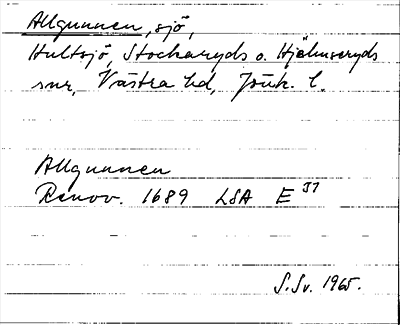 Allgunnen, sjö,
Hultsjö, Stockaryds o. Hjälmseryds
snr, Västra hd, Jönk. l.
Allgunnen
Renov. 1689 LSA E 37
S. Sv. 1965.